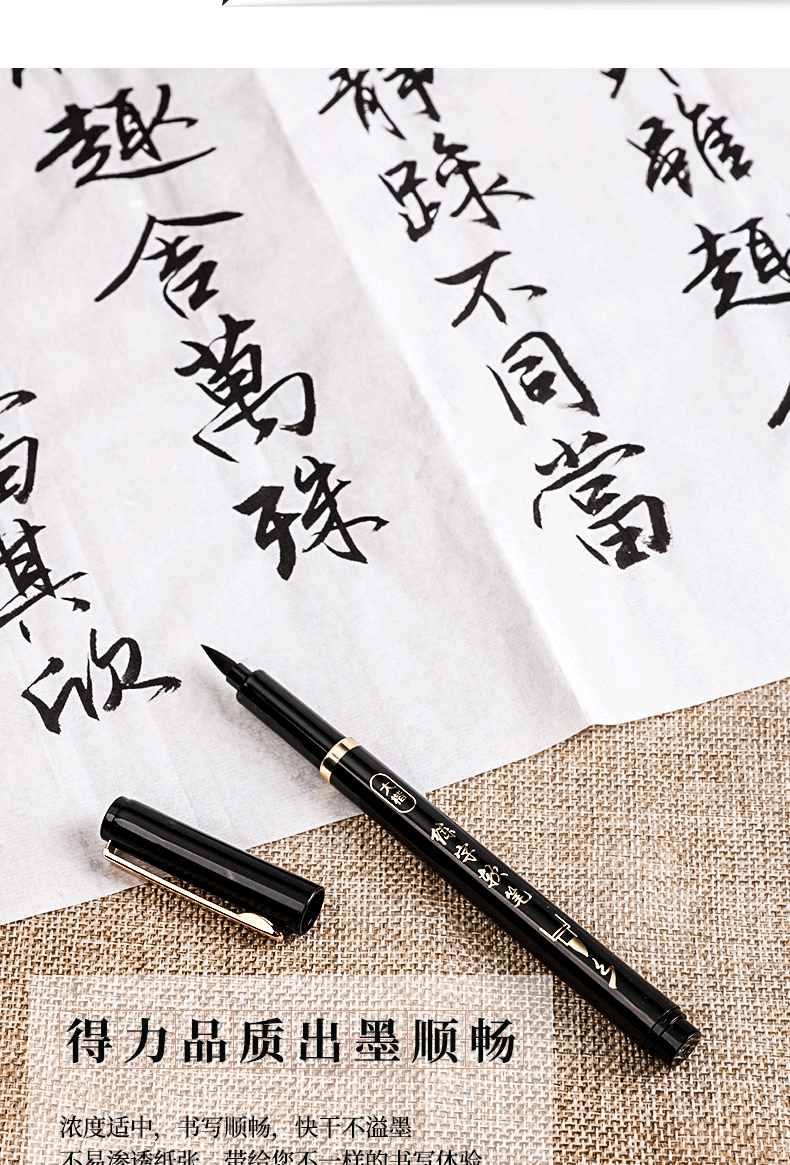 雖趣
靜躁不同當
趣舍萬殊
其欣
大楷
软笔
得力品质出墨顺畅
浓度适中，书写顺畅，快干不溢墨
不易渗透纸张，带给您不一样的书写体验